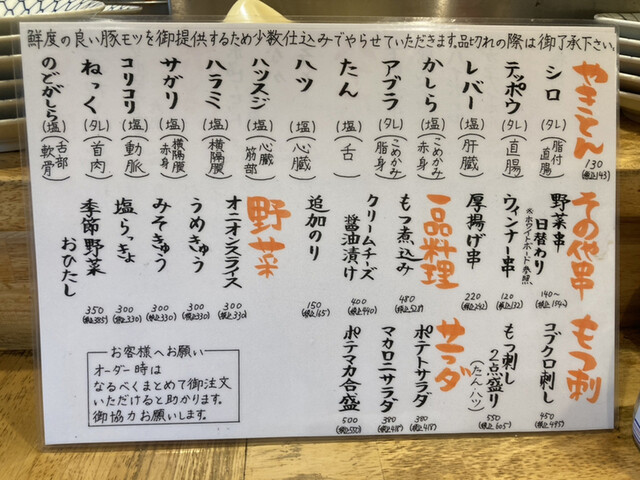 鮮度の良い豚モツを御提供するため少数仕込みでやらせていただきます。品切れの際は御了承下さい。
やきとん
130
(税込143)
シロ (タレ) (脂付直腸)
テッポウ (タレ) (直腸)
レバー (塩) (肝臓)
かしら (塩) (こめかみ赤身)
アブラ (タレ) (こめかみ脂身)
たん (塩) (舌)
ハツ (塩) (心臓)
ハツスジ (塩) (心臓筋部)
ハラミ (塩) (横隔膜)
サガリ (塩) (横隔膜赤身)
コリコリ (塩) (動脈)
ねっく (タレ) (首肉)
のどがしら (塩) (舌部軟骨)
その他串
野菜串
日替わり
※ホワイトボード参照
140〜
(税込154〜)
ウィンナー串
120
(税込132)
厚揚げ串
220
(税込242)
一品料理
もつ煮込み
480
(税込528)
クリームチーズ
醤油漬け
400
(税込440)
追加のり
150
(税込165)
野菜
オニオンスライス
300
(税込330)
うめきゅう
300
(税込330)
みそきゅう
300
(税込330)
塩らっきょ
300
(税込330)
季節野菜
おひたし
350
(税込385)
もつ刺
コブクロ刺し
450
(税込495)
もつ刺し
2点盛り
(たん ハツ)
550
(税込605)
サラダ
ポテトサラダ
380
(税込418)
マカロニサラダ
380
(税込418)
ポテマカ合盛
500
(税込550)
お客様へお願い
オーダー時は
なるべくまとめて御注文
いただけると助かります。
御協力お願いします。